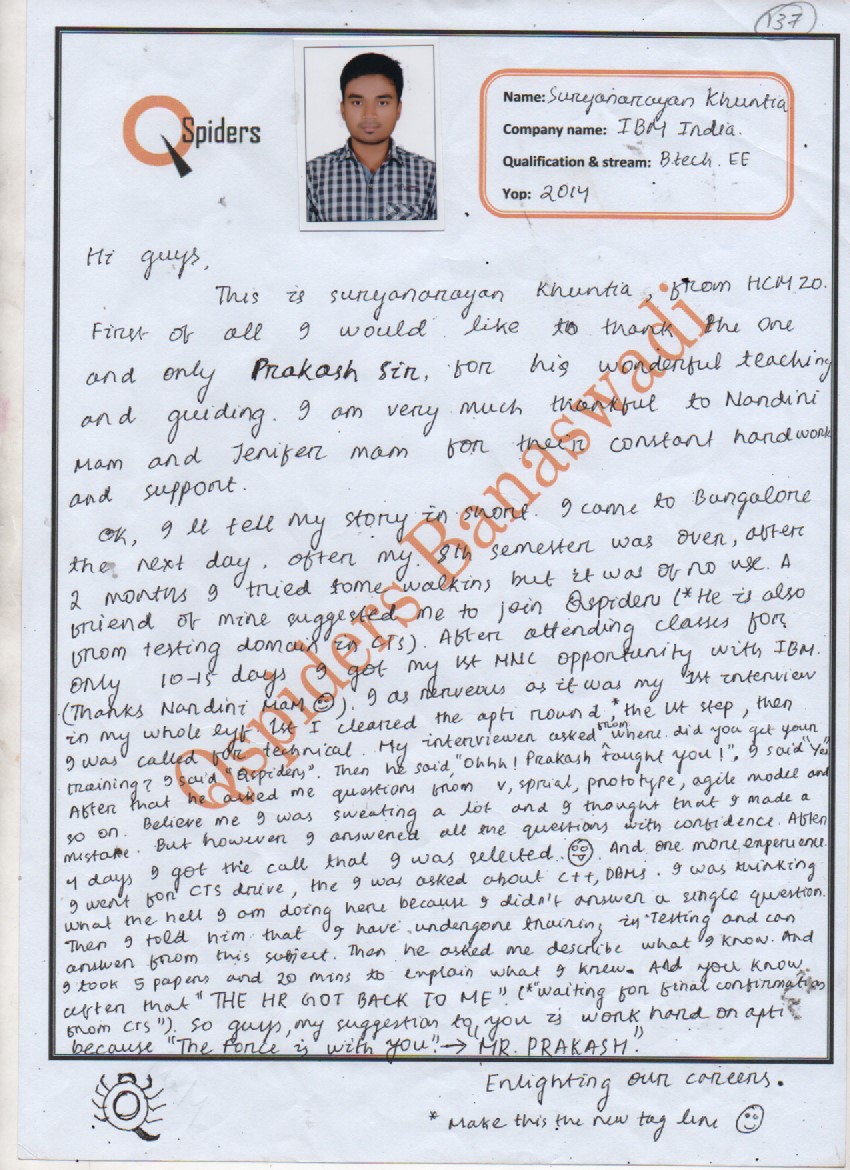 137
QSpiders
Name: Suryanarayan Khuntia
Company name: IBM India.
Qualification & stream: Btech. EE
Yop: 2014
Hi guys,
This is suryanarayan Khuntia, from HCM 20.
First of all I would like to thank the one
and only Prakash Sir, for his wonderful teaching
and guiding. I am very much thankful to Nandini
Mam and Jenifer mam for their constant handwork
and support.
Ok, I ll tell my story in short. I came to Bangalore
the next day. after my 8th semester was over, after
2 months I tried some walkins but it was of no use. A
friend of mine suggested me to join Qspiders (*He is also
from testing domain in CTS). After attending classes for
only 10-15 days I got my 1st MNC opportunity with IBM.
(Thanks Nandini Mam ☺). I as nerveous as it was my 1st interview
in my whole 1st I cleared the apti round *the 1st step, then
I was called for technical. My interviewer asked from where did you get your
training? I said "Qspiders". Then he said, "Ohhh! Prakash taught you!", I said "Yes"
After that he asked me questions from v, sprial, prototype, agile model and
so on. Believe me I was sweating a lot and I thought that I made a
mistake. But however I answered all the questions with confidence. After
4 days I got the call that I was selected.. ☺. And one more experience
I went for CTS drive, the I was asked about C++, DBMS. I was thinking
what the hell I am doing here because I didn't answer a single question.
Then I told him that I have undergone training in Testing and can
answer from this subject. Then he asked me describe what I know. And
I took 5 papers and 20 mins to explain what I knew. And you know
after that "THE HR GOT BACK TO ME". (*"waiting for final confirmation
from CTS"). So guys, my suggestion to you is work hard on apti
because "The Force is with you". → MR. PRAKASH."
Enlighting our careers.
* Make this the new tag line ☺
Qspiders Banaswadi